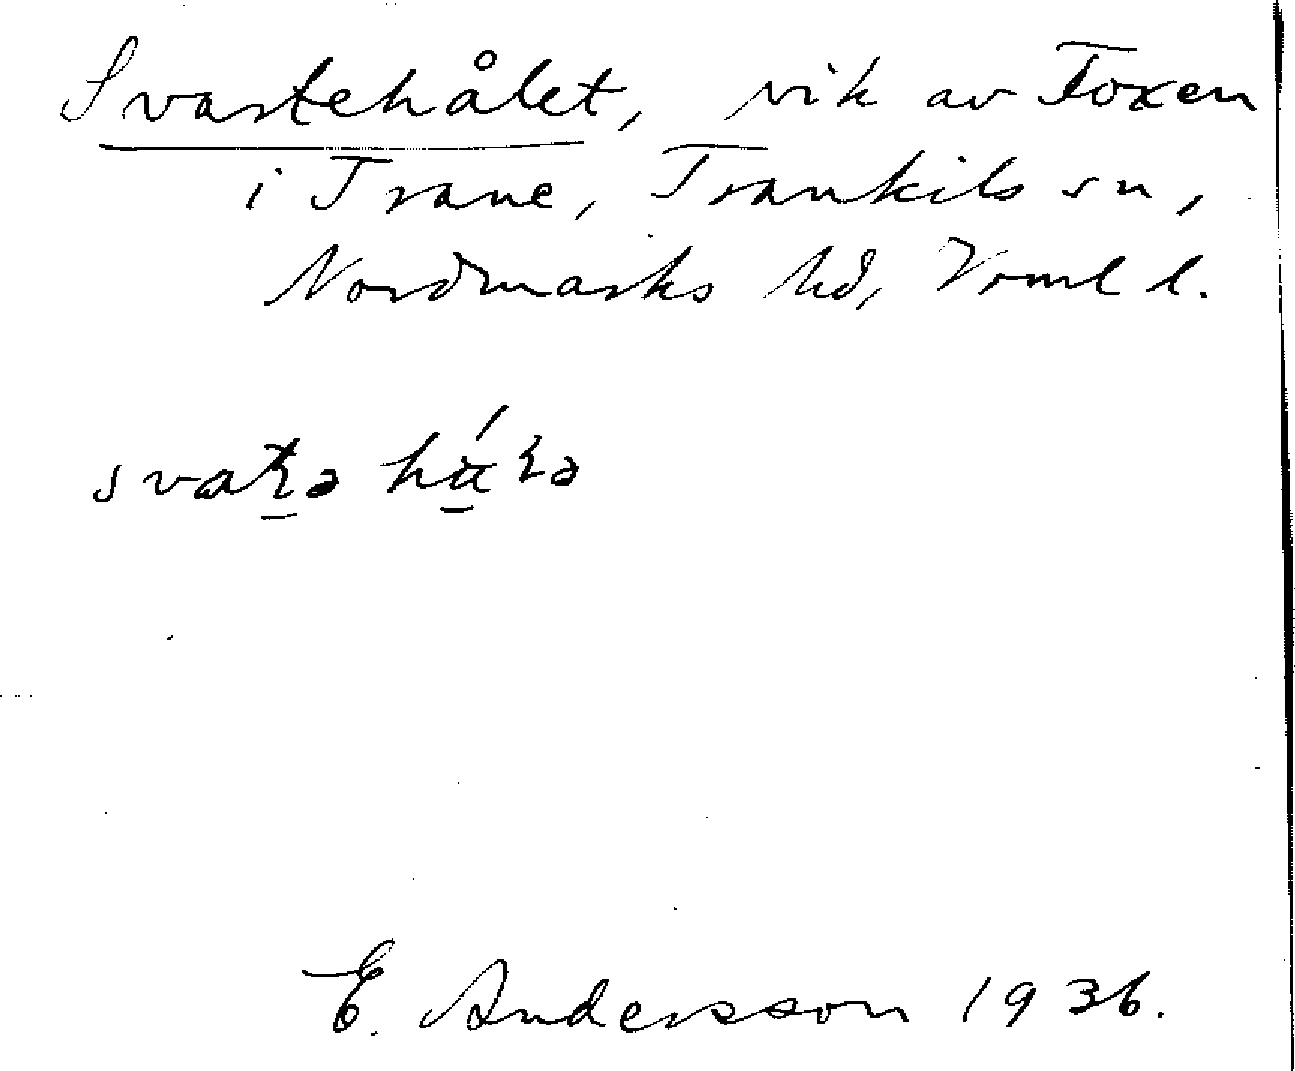 Svartehålet, vik av Foxen
i Trane, Trankils sn,
Nordmarks hd, Vrml l.
E. Andersson 1936.